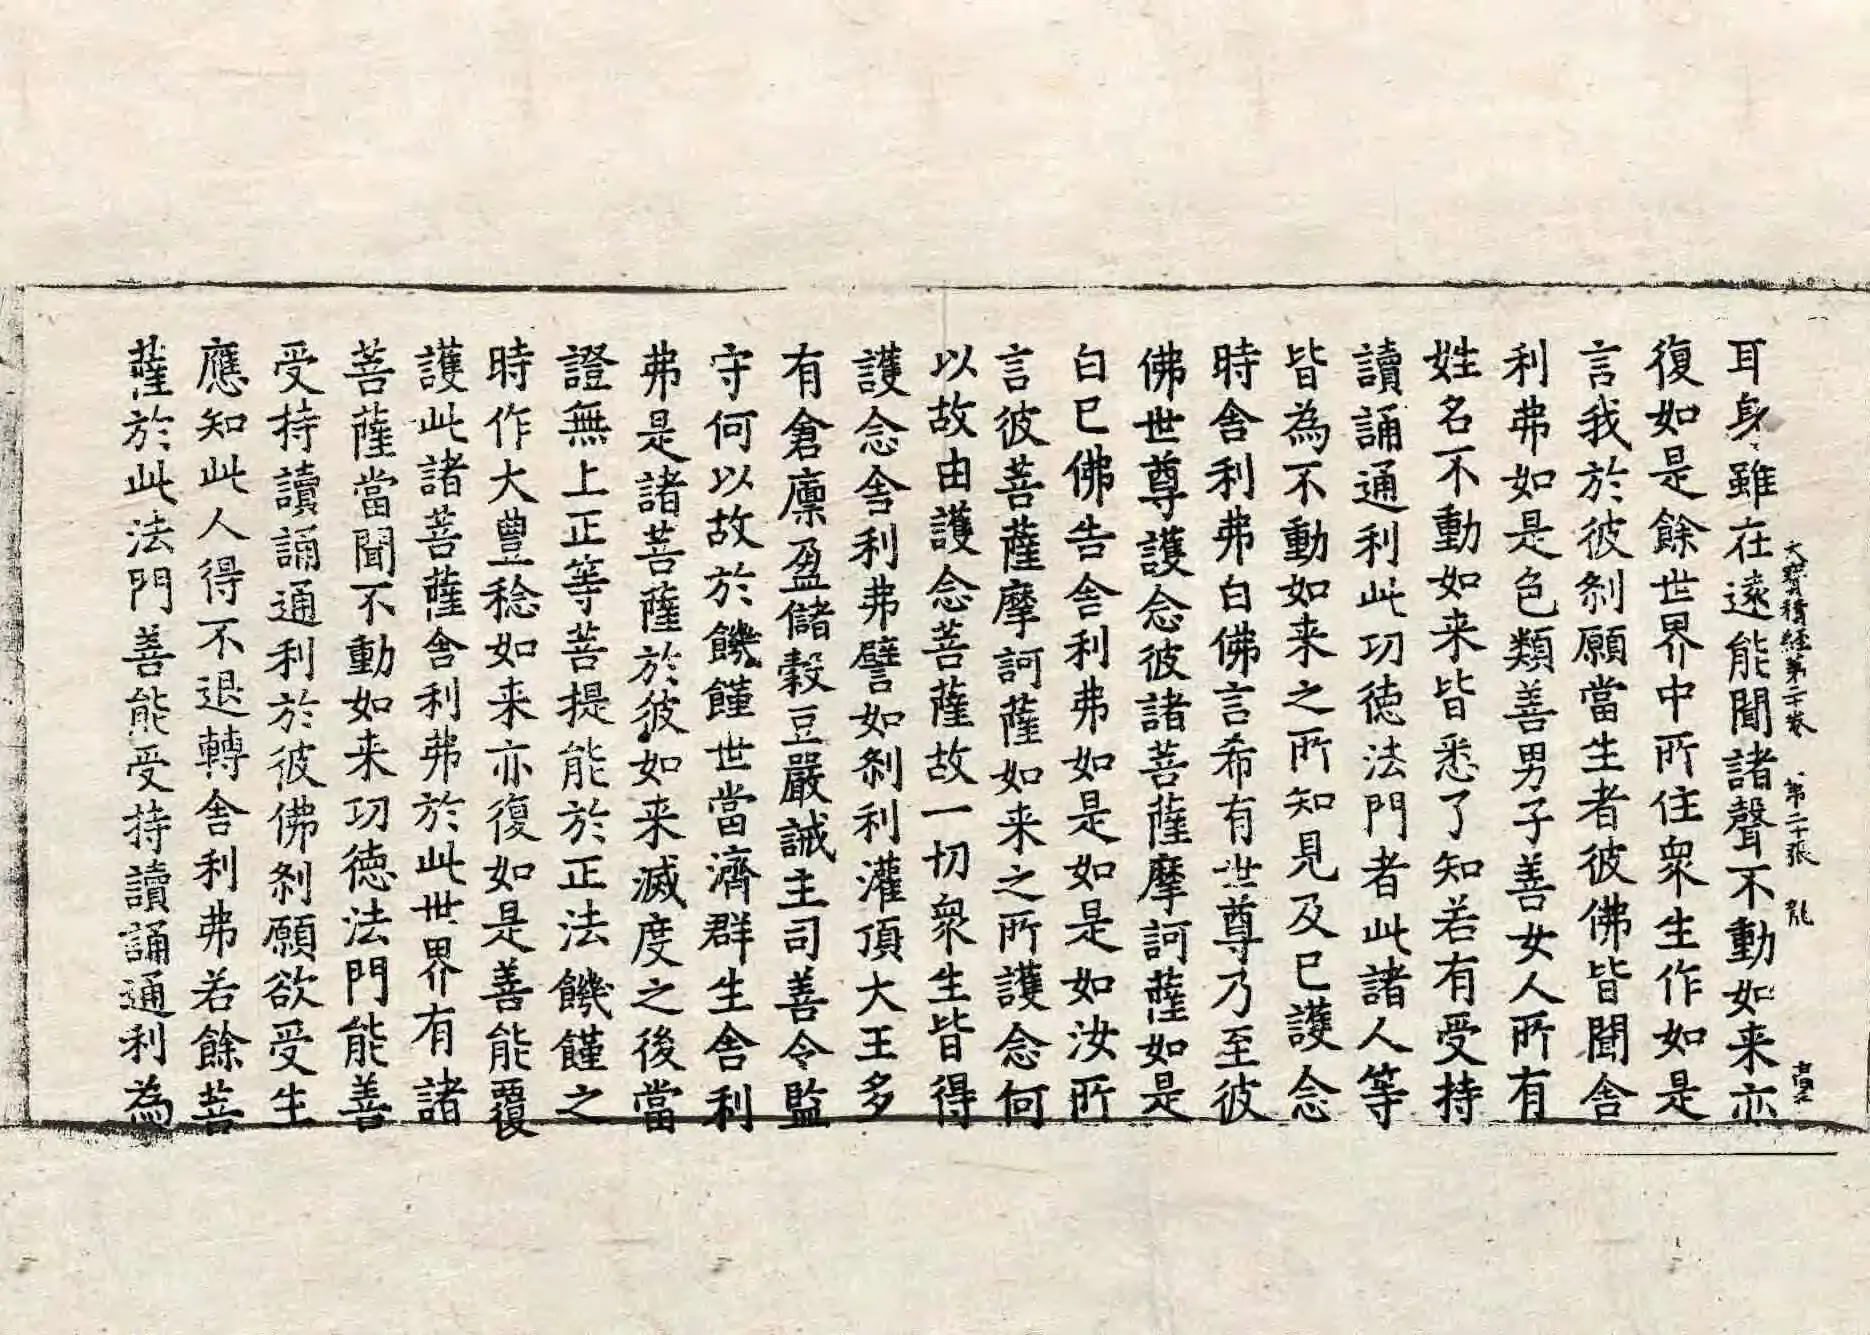 大寶積經第二十卷　第二十張　龍
耳身雖在遠能聞諸聲不動如来亦
復如是餘世界中所住衆生作如是
言我於彼刹願當生者彼佛皆聞舍
利弗如是色類善男子善女人所有
姓名不動如来皆悉了知若有受持
讀誦通利此功徳法門者此諸人等
皆為不動如来之所知見及已護念
時舍利弗白佛言希有世尊乃至彼
佛世尊護念彼諸菩薩摩訶薩如是
白已佛告舍利弗如是如是如汝所
言彼菩薩摩訶薩如来之所護念何
以故由護念菩薩故一切衆生皆得
護念舍利弗譬如刹利灌頂大王多
有倉廪盈儲穀豆嚴誡主司善令監
守何以故於饑饉世當濟群生舍利
弗是諸菩薩於彼如来滅度之後當
證無上正等菩提能於正法饑饉之
時作大豊稔如来亦復如是善能覆
護此諸菩薩舍利弗於此世界有諸
菩薩當聞不動如来功徳法門能善
受持讀誦通利於彼佛刹願欲受生
應知此人得不退轉舍利弗若餘菩
薩於此法門善能受持讀誦通利為